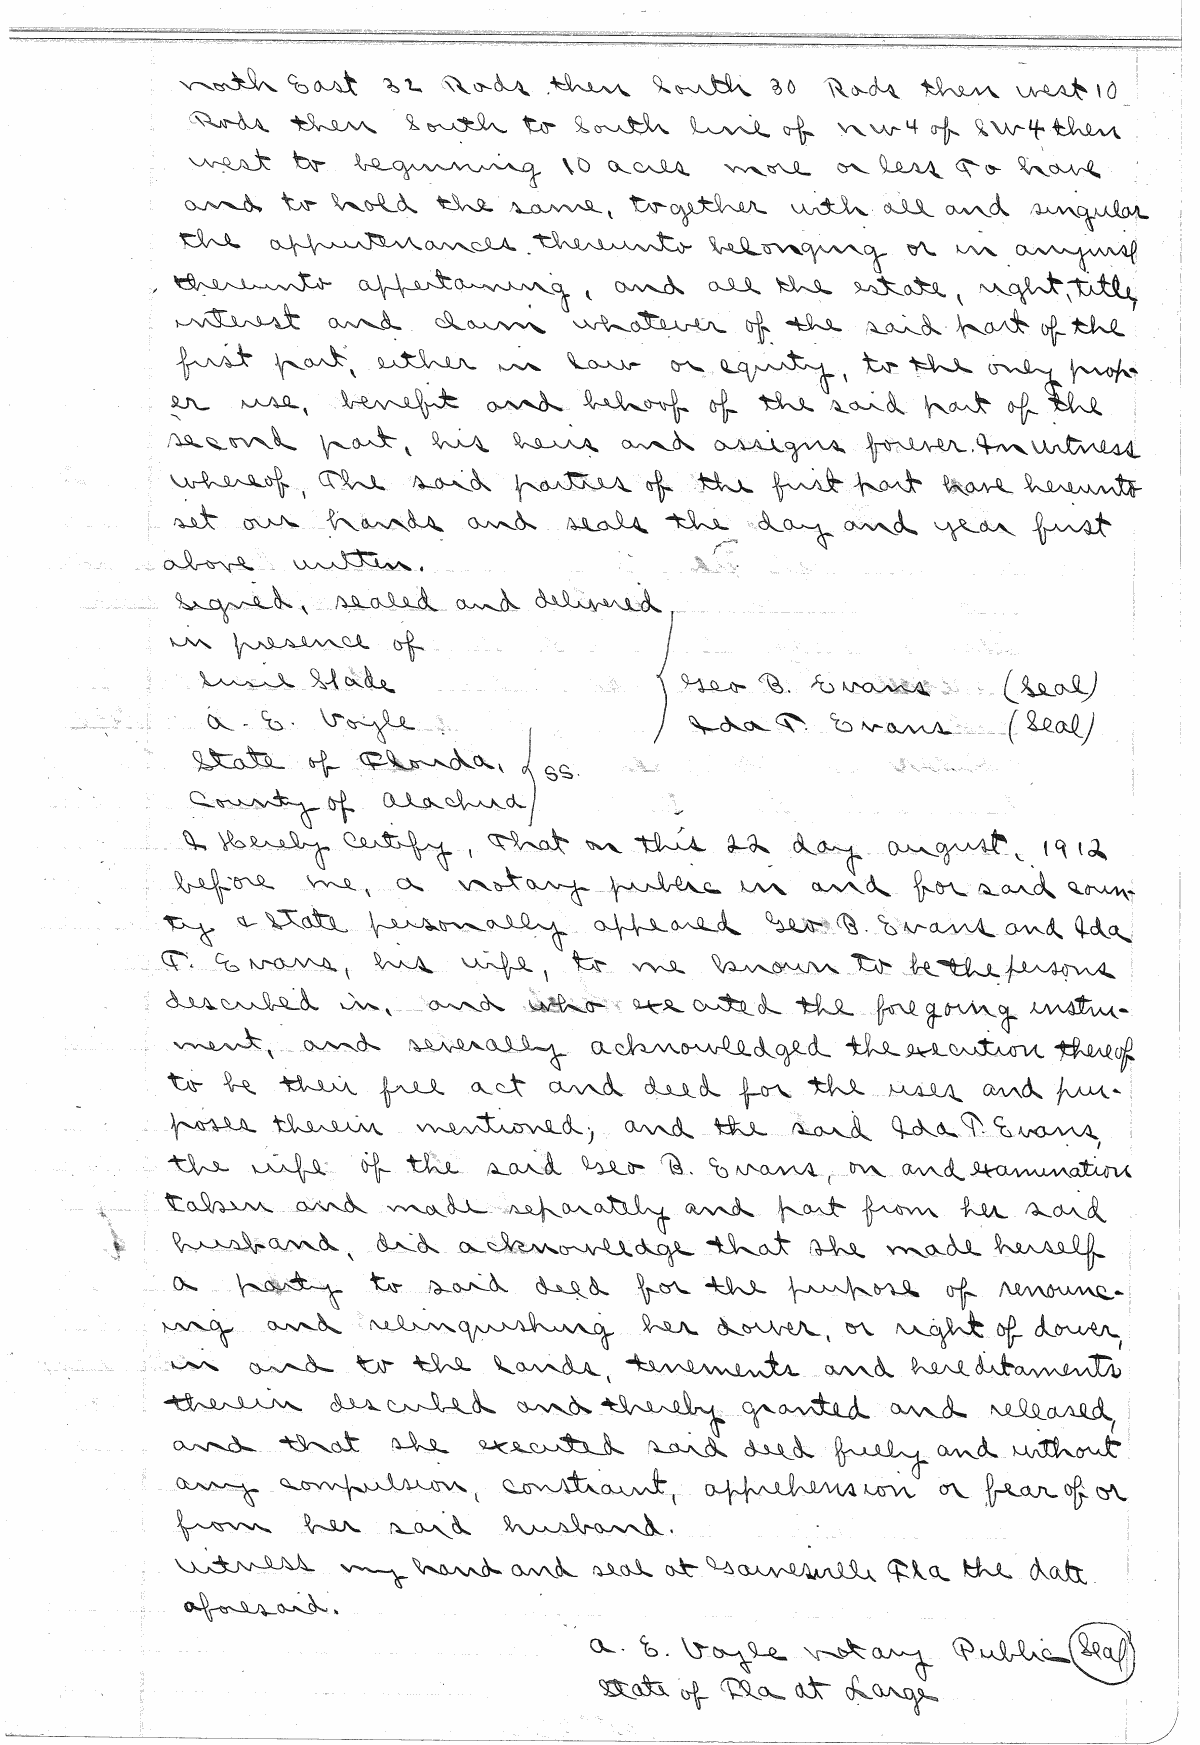 north East 32 Rods then South 30 Rods then west 10
Rods then South to South line of NW4 of SW4 then
west to beginning 10 acres more or less To have
and to hold the same, together with all and singular
the appurtenances thereunto belonging or in anywise
thereunto appertaining, and all the estate, right, title,
interest and claim whatever of the said part of the
first part, either in law or equity, to the only prop-
er use, benefit and behoof of the said part of the
second part, his heirs and assigns forever. In witness
whereof, The said parties of the first part have hereunto
set our hands and seals the day and year first
above written.
Signed, sealed and delivered
in presence of
Susie Slade
Geo B. Evans (Seal)
A. E. Voyle
Ida T. Evans (Seal)
State of Florida,
ss.
County of Alachua
I Hereby Certify, That on this 22 day august, 1912
before me, a notary public in and for said coun-
ty & State personally appeared Geo B. Evans and Ida
T. Evans, his wife, to me known to be the persons
described in, and who executed the foregoing instru-
ment, and severally acknowledged the execution thereof
to be their free act and deed for the uses and pur-
poses therein mentioned; and the said Ida T. Evans,
the wife of the said Geo B. Evans, on and examination
taken and made separately and part from her said
husband, did acknowledge that she made herself
a party to said deed for the purpose of renounc-
ing and relinquishing her dower, or right of dower,
in and to the lands, tenements and hereditaments
therein described and thereby granted and released,
and that she executed said deed freely and without
any compulsion, constraint, apprehension or fear of or
from her said husband.
Witness my hand and seal at Gainesville Fla the date
aforesaid.
A. E. Voyle Notary Public (Seal)
State of Fla at Large